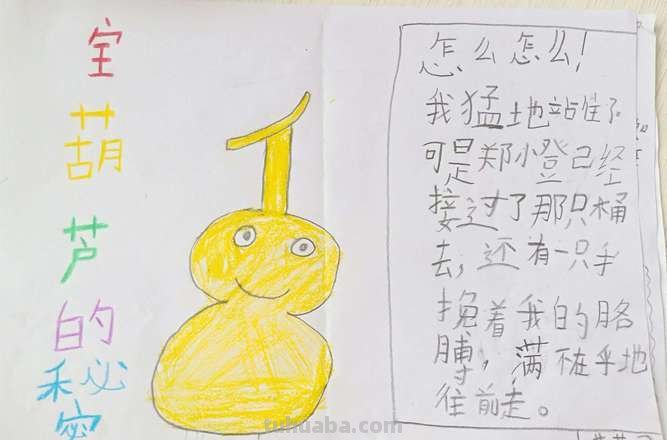 宝葫芦的秘密
怎么怎么!
我猛地站住了
可是郑小登已经
接过了那只桶
去,还有一只手
挽着我的胳
膊,满不在乎地
往前走。
tuhuaba.com